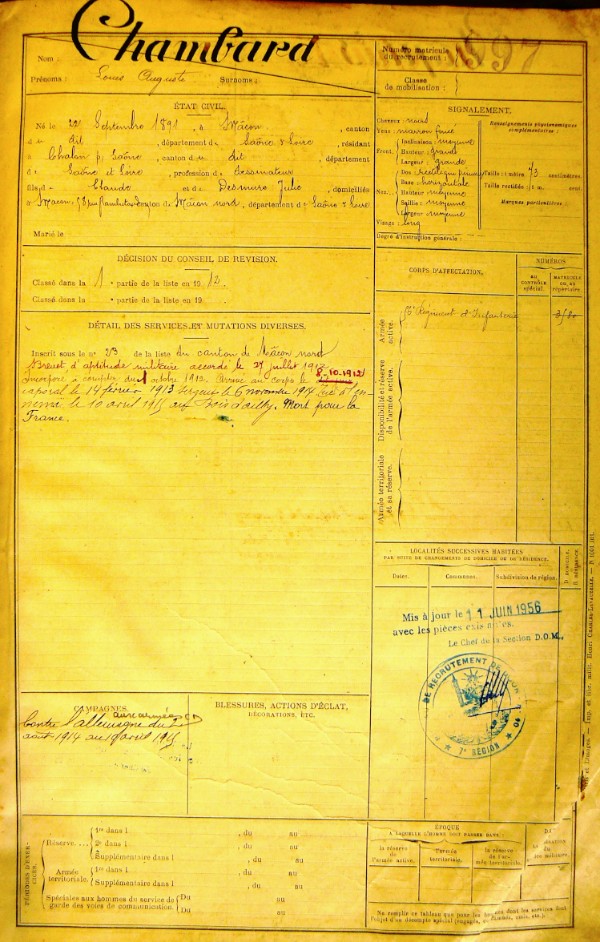 Chambard
Nom :
Prénoms : Louis Auguste Surnoms :
Numéro matricule
du recrutement :
597
Classe
de mobilisation :
ÉTAT CIVIL.
Né le 22 Septembre 1891, à Mâcon, canton
du dit, département de Saône & Loire, résidant
à Chalon s/ Saône, canton du dit, département
de Saône et Loire, profession de dessinateur
fils de Claude et de Desmurs Julie, domiciliés
à Mâcon, canton de Mâcon nord, département de Saône & Loire
Marié le
SIGNALEMENT.
Cheveux
Yeux marron
Renseignements physionomiques
complémentaires :
Front. Inclinaison : moyenne
Hauteur : grande
Largeur : grande
Nez. Dos : rectiligne
Base : horizontale
Hauteur : moyenne
Saillie : moyenne
Largeur : moyenne
Visage : long
Taille : 1 mètre 73 centimètres
Taille rectifiée : 1 m. cent.
Marques particulières :
Degré d'instruction générale :
DÉCISION DU CONSEIL DE RÉVISION.
Classé dans la 1 partie de la liste en 1912.
Classé dans la partie de la liste en 19
CORPS D'AFFECTATION.
NUMÉROS
AU
CONTRÔLE
spécial.
MATRICULE
OU AU
répertoire.
Armée
active.
Régiment d'Infanterie
Disponibilité et réserve
de l'armée active.
Armée territoriale
et sa réserve.
DÉTAIL DES SERVICES ET MUTATIONS DIVERSES.
Inscrit sous le n° 23 de la liste du canton de Mâcon nord
Brevet d'aptitude militaire accordé le 27 juillet
Incorporé à compter du octobre 1912. Arrivé au corps le 8.10.1912
caporal le 14 février 1913 Sergent le 6 novembre 1914 Tué à l'en-
nemi le 10 avril 1915 au Bois d'ailly. Mort pour la
France.
LOCALITÉS SUCCESSIVES HABITÉES
PAR SUITE DE CHANGEMENTS DE DOMICILE OU DE RÉSIDENCE.
Dates. Communes. Subdivision de région.
D. DOMICILE,
R. RÉSIDENCE
Mis à jour le 11 JUIN 1956
avec les pièces
Le Chef de la Section D.O.M.,
DE RECRUTEMENT DE
7e RÉGION
CAMPAGNES.
aux armées
Contre l'allemagne du
août 1914 au 10 avril 1915
BLESSURES, ACTIONS D'ÉCLAT,
DÉCORATIONS, ETC.
PÉRIODES D'EXER-
CICES.
Réserve.
1re dans l , du au
2e dans l , du au
Supplémentaire dans l , du au
Armée
territoriale.
1re dans l , du au
Supplémentaire dans l , du au
Spéciales aux hommes du service de
garde des voies de communication.
Du au
Du au
ÉPOQUE
A LAQUELLE L'HOMME DOIT PASSER DANS :
la réserve
de l'armée active.
l'armée
territoriale.
la réserve
de l'ar-
mée territoriale.
Ne remplir ce tableau que pour les hommes dont les services font